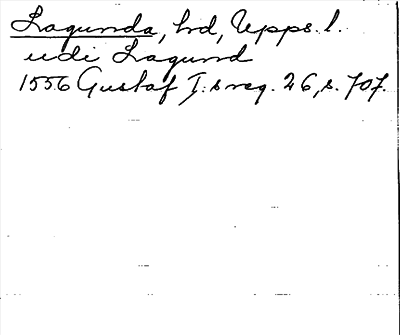 Lagunda, hd, Upps. l.
udi Lagund
1556 Gustaf I:s reg. 26, s. 707.